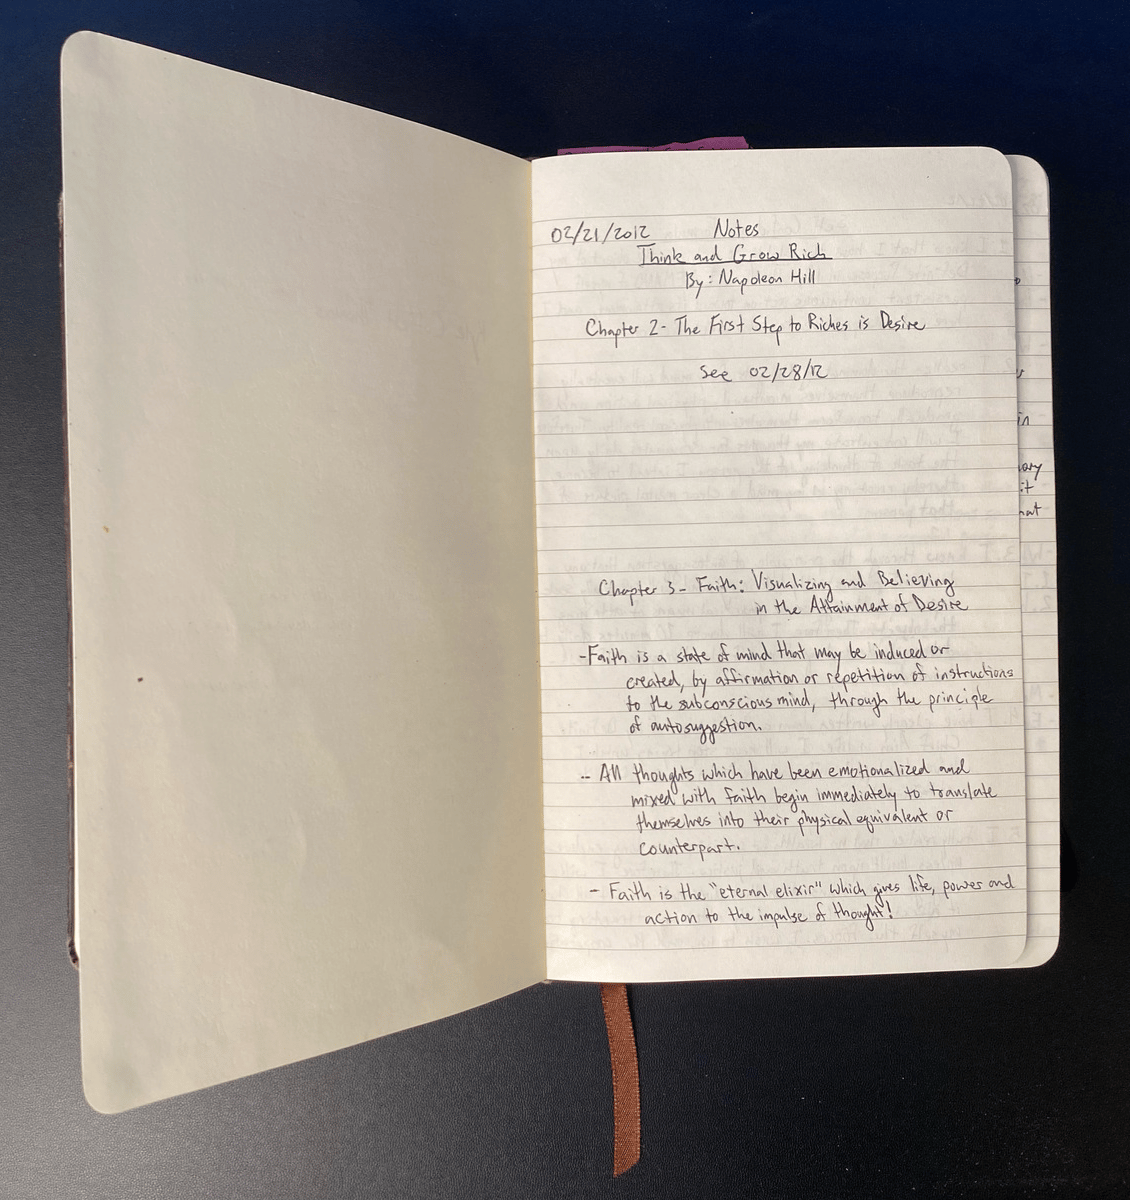 02/21/2012 Notes
Think and Grow Rich
By: Napoleon Hill
Chapter 2- The First Step to Riches is Desire
See 02/28/12
Chapter 3- Faith: Visualizing and Believing
in the Attainment of Desire
-Faith is a state of mind that may be induced or
created, by affirmation or repetition of instructions
to the subconscious mind, through the principle
of autosuggestion.
-- All thoughts which have been emotionalized and
mixed with faith begin immediately to translate
themselves into their physical equivalent or
counterpart.
- Faith is the "eternal elixir" which gives life, power and
action to the impulse of thought!